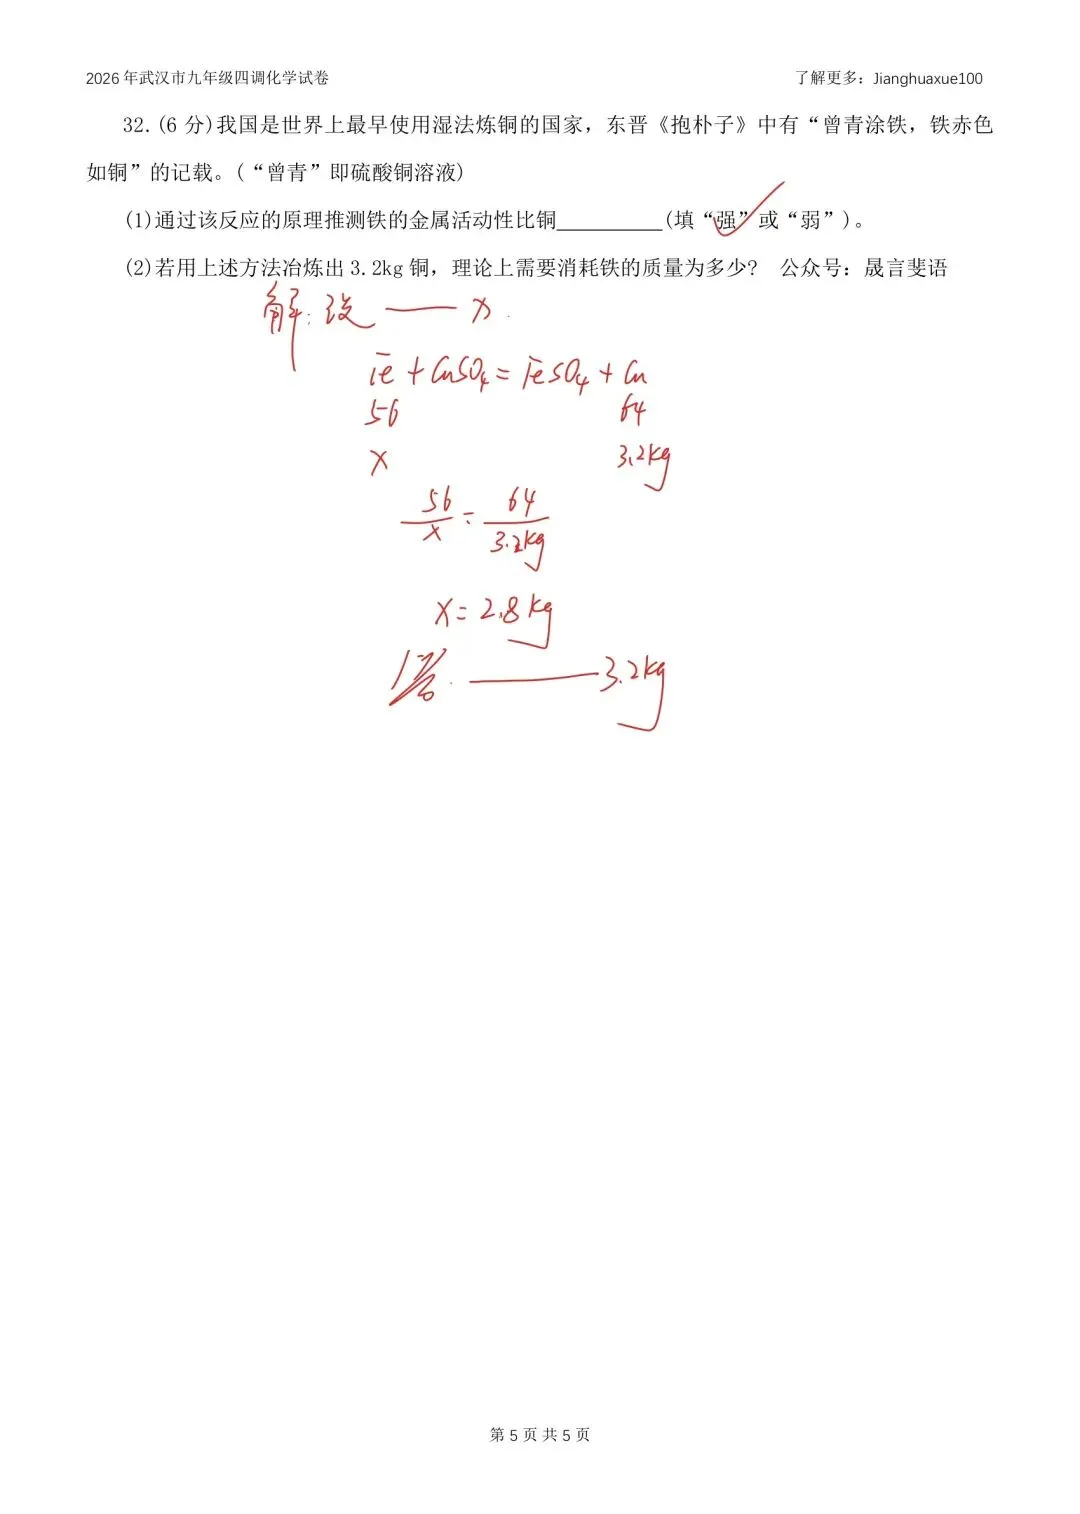 2026年武汉市九年级四调化学试卷 了解更多：Jianghuaxue100
32.(6 分)我国是世界上最早使用湿法炼铜的国家，东晋《抱朴子》中有“曾青涂铁，铁赤色
如铜”的记载。(“曾青”即硫酸铜溶液)
(1)通过该反应的原理推测铁的金属活动性比铜__________(填“强”或“弱”)。
(2)若用上述方法冶炼出 3.2kg 铜，理论上需要消耗铁的质量为多少? 公众号：晟言斐语
解：设——x.
Fe + CuSO₄ = FeSO₄ + Cu
56 64
x 3.2kg
56/x = 64/3.2kg
x=2.8kg
答.——3.2kg
第 5 页 共 5 页